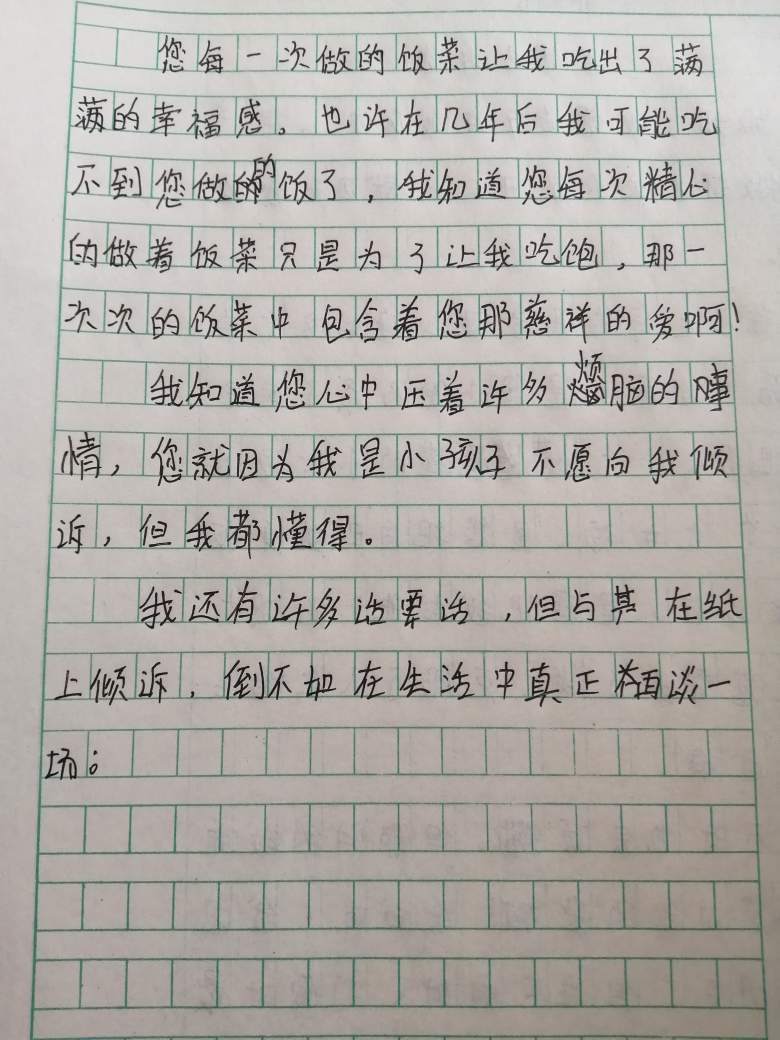 您每一次做的饭菜让我吃出了满
满的幸福感。也许在几年后我可能吃
不到您做的饭了，我知道您每次精心
的做着饭菜只是为了让我吃饱，那一
次次的饭菜中包含着您那慈祥的爱啊！
我知道您心中压着许多烦脑的事
情，您就因为我是小孩子不愿向我倾
诉，但我都懂得。
我还有许多话要话，但与其在纸
上倾诉，倒不如在生活中真正谈一
场。